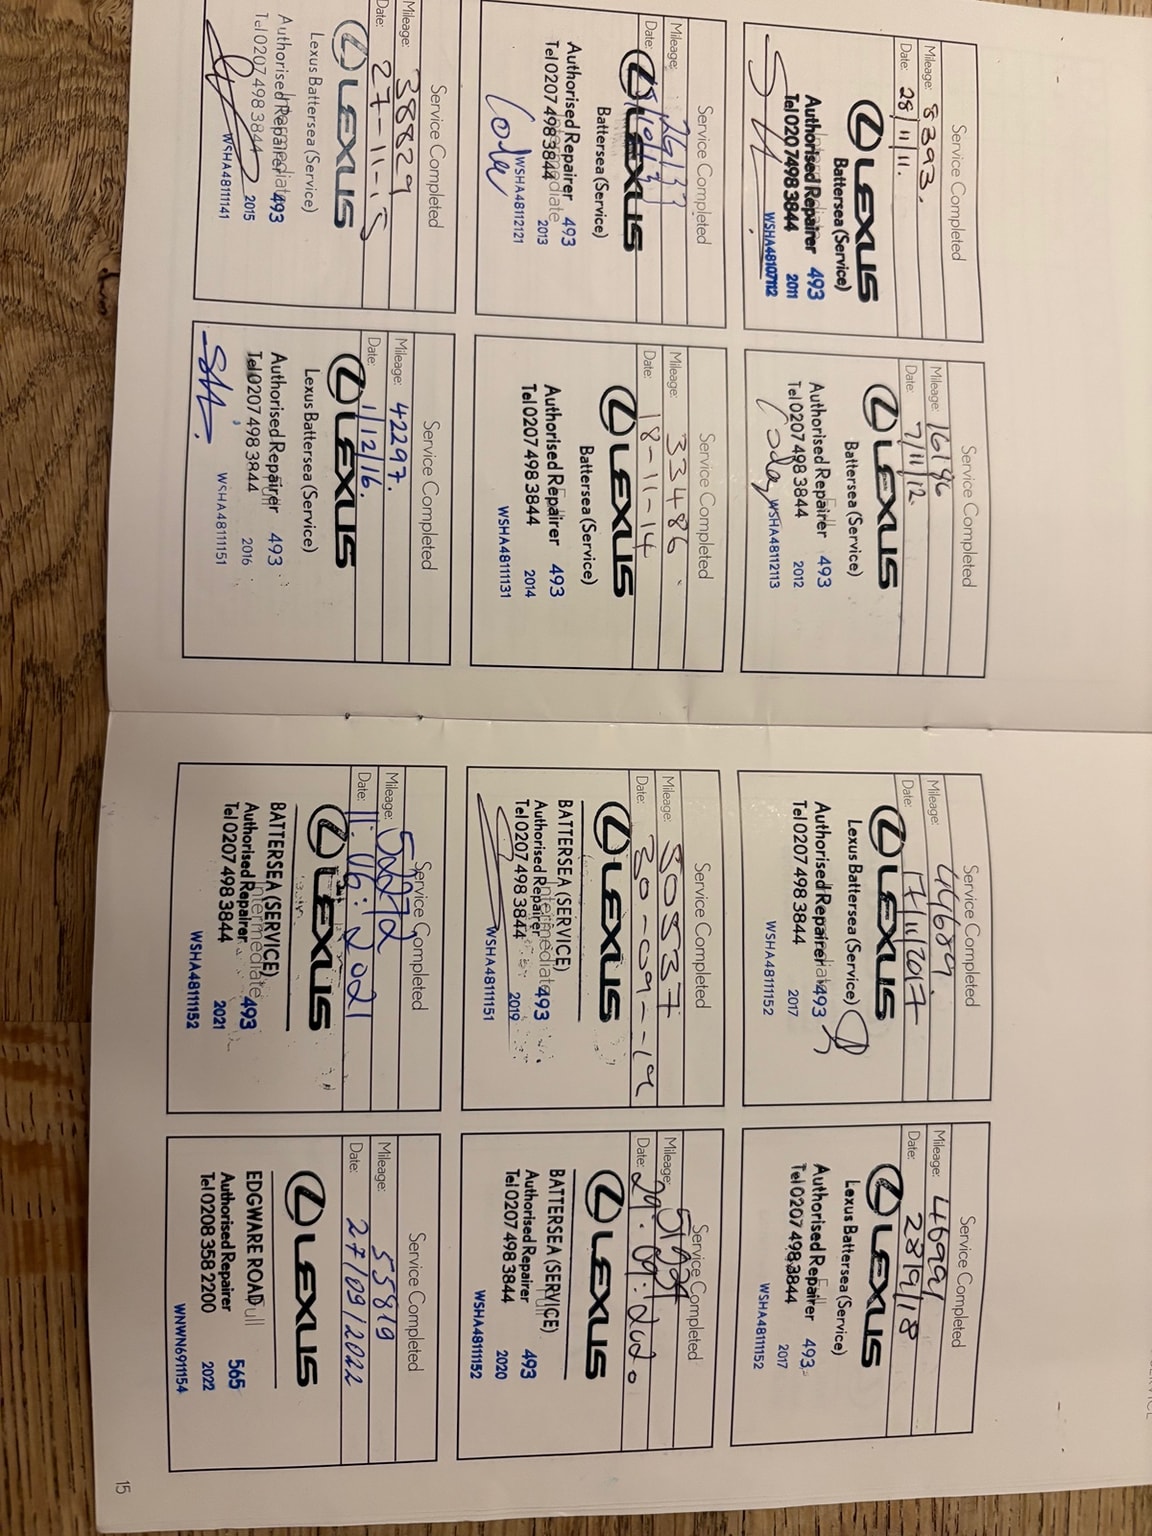 Service Completed
Mileage: 8393.
Date: 28/11/11.
LEXUS
Battersea (Service)
Authorised Repairer 493
Tel 0207 498 3844 2011
WSHA48107112
Service Completed
Mileage: 16196
Date: 7/11/12.
LEXUS
Battersea (Service)
Authorised Repairer 493
Tel 0207 498 3844 2012
WSHA48112113
Service Completed
Mileage: 26137
Date:
LEXUS
Battersea (Service)
Authorised Repairer 493
Intermediate
Tel 0207 498 3844 2013
WSHA48112121
Service Completed
Mileage: 33486.
Date: 18-11-14
LEXUS
Battersea (Service)
Authorised Repairer 493
Tel 0207 498 3844 2014
WSHA48111131
Service Completed
Mileage: 38829
Date: 27-11-15
LEXUS
Lexus Battersea (Service)
Authorised Repairer 493
Intermediate
Tel 0207 498 3844 2015
WSHA48111141
Service Completed
Mileage: 42297.
Date: 1/12/16.
LEXUS
Lexus Battersea (Service)
Authorised Repairer 493
Full
Tel 0207 498 3844 2016
WSHA48111151
Service Completed
Mileage: 44689.
Date: 17/11/2017
LEXUS
Lexus Battersea (Service)
Authorised Repairer 493
Tel 0207 498 3844 2017
WSHA48111152
Service Completed
Mileage: 46991
Date: 28/9/18
LEXUS
Lexus Battersea (Service)
Authorised Repairer 493
Full
Tel 0207 498 3844 2017
WSHA48111152
Service Completed
Mileage: 50537
Date: 30-09-19
LEXUS
BATTERSEA (SERVICE)
Intermediate
Authorised Repairer 493
Tel 0207 498 3844 2019
WSHA48111151
Service Completed
Mileage:
Date: 29.09.2020
LEXUS
BATTERSEA (SERVICE)
Full
Authorised Repairer 493
Tel 0207 498 3844 2020
WSHA48111152
Service Completed
Mileage: 52272
Date: 11.06.2021
LEXUS
BATTERSEA (SERVICE)
Intermediate
Authorised Repairer 493
Tel 0207 498 3844 2021
WSHA48111152
Service Completed
Mileage: 55819
Date: 27/09/2022
LEXUS
EDGWARE ROAD
Full
Authorised Repairer 565
Tel 0208 358 2200 2022
WNWN6911154
15